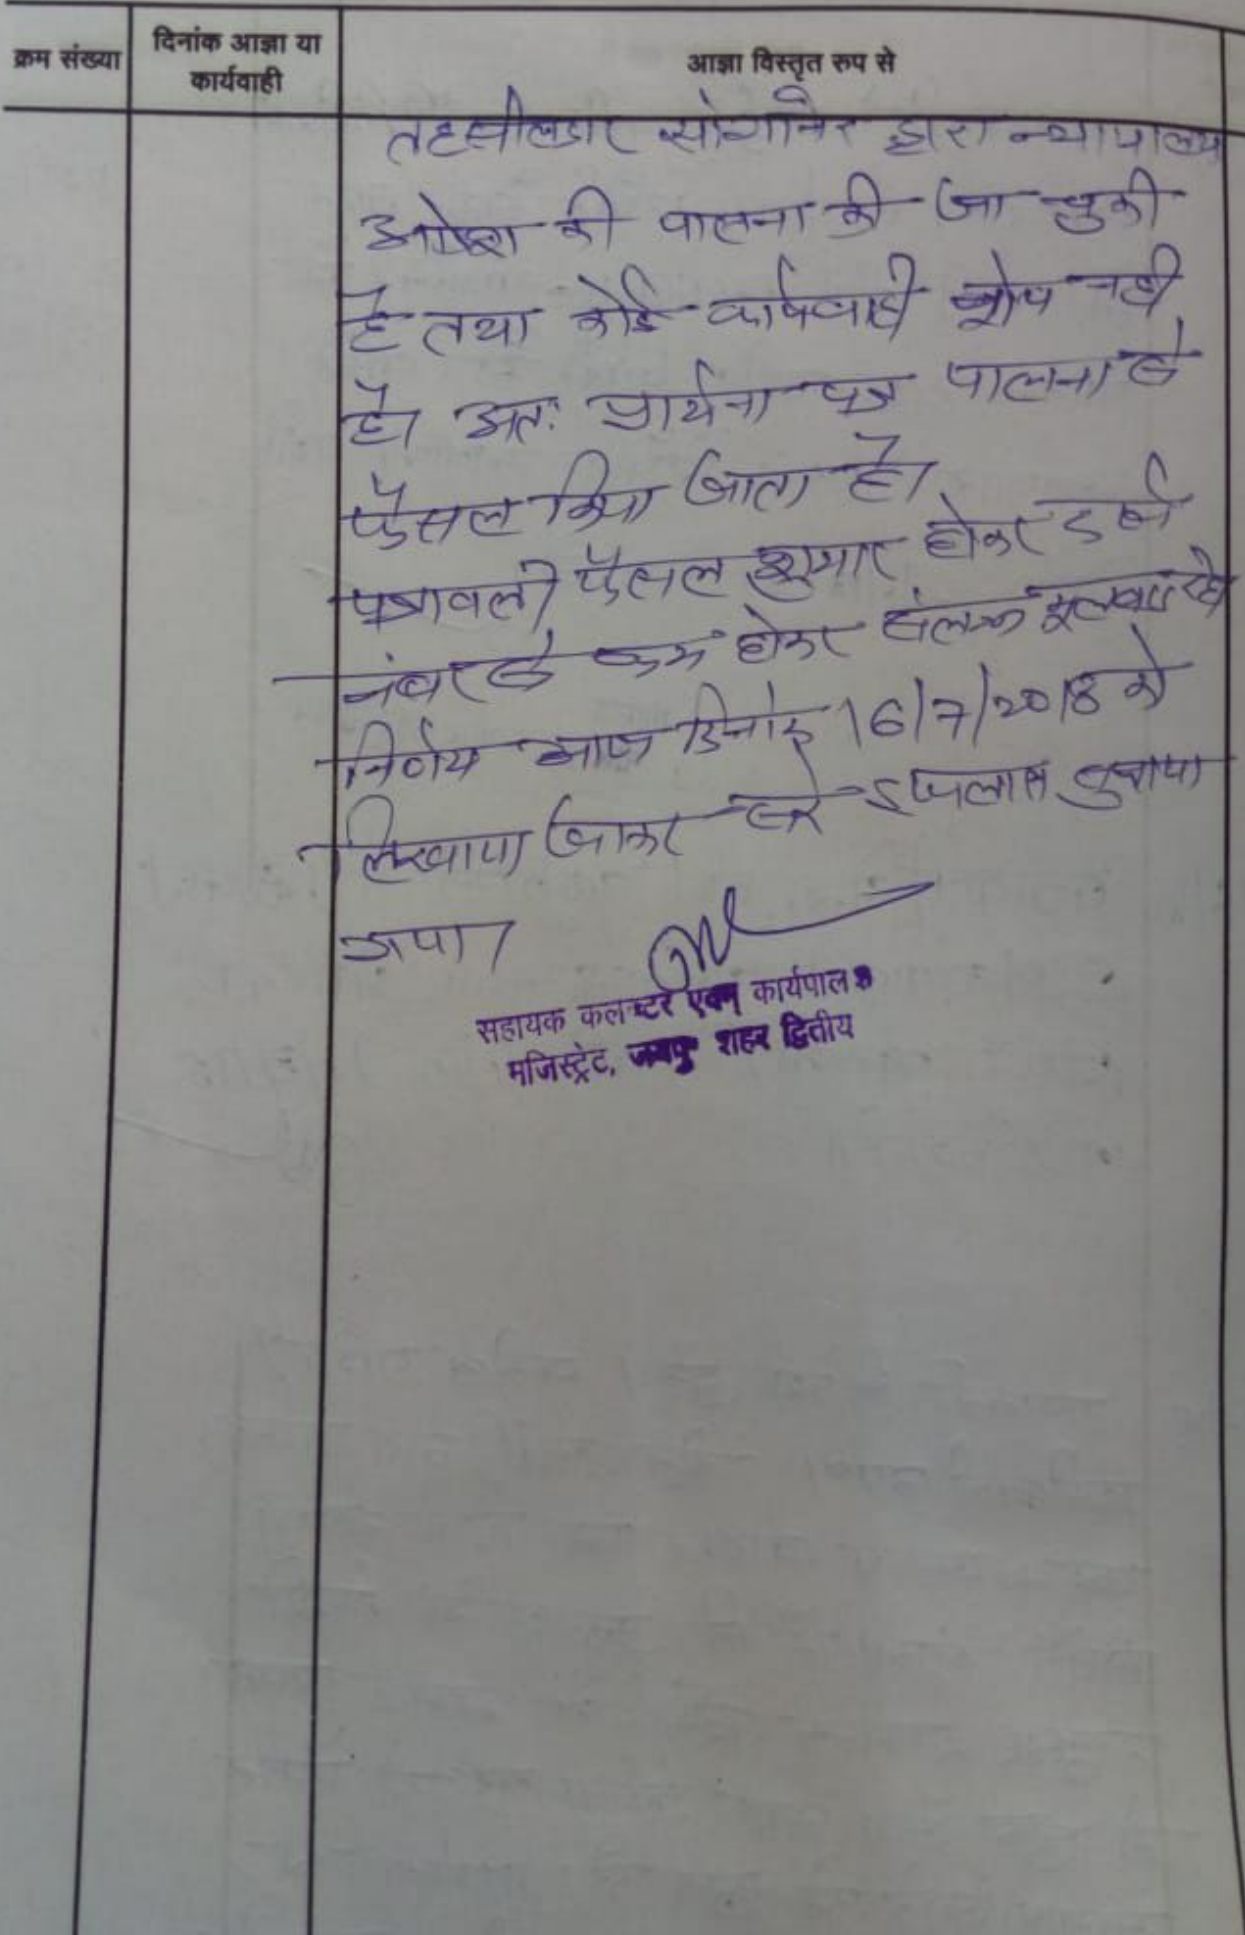 क्रम संख्या
दिनांक आज्ञा या
कार्यवाही
आज्ञा विस्तृत रुप से
तहसीलदार सांगानेर द्वारा न्यायालय
आदेश की पालना की जा चुकी
है तथा कोई कार्यवाही शेष नही
है। अतः प्रार्थना पत्र पालना से
फैसल किया जाता है।
पत्रावली फैसल शुमार होकर दर्ज
नंबर से कम होकर संलग्न मूलवाद रहे
निर्णय आज दिनांक 16/7/2018 को
लिखाया जाकर सरे इजलास सुनाया
गया।
सहायक कलक्टर एवम् कार्यपालक
मजिस्ट्रेट, जयपुर शहर द्वितीय